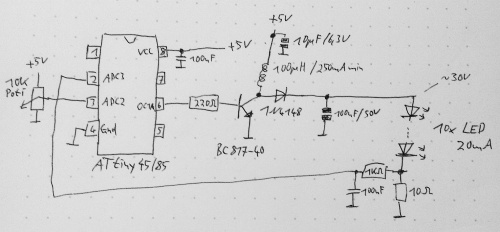 +5V
10µF/43V
+5V
1
VCC
8
+5V
100nF
100µH/250mA min
~30V
10k
Poti
2
ADC3
7
3
ADC2
OC1A
6
220Ω
1N4148
100nF/50V
10x LED
20mA
4
Gnd
5
BC817-40
ATtiny 45/85
1kΩ
100nF
10Ω